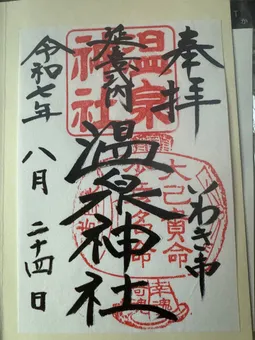 奉拝
延喜式内
温泉神社
いわき市
令和七年
八月
二十四日
温泉
神社
大己貴命
少彦名命